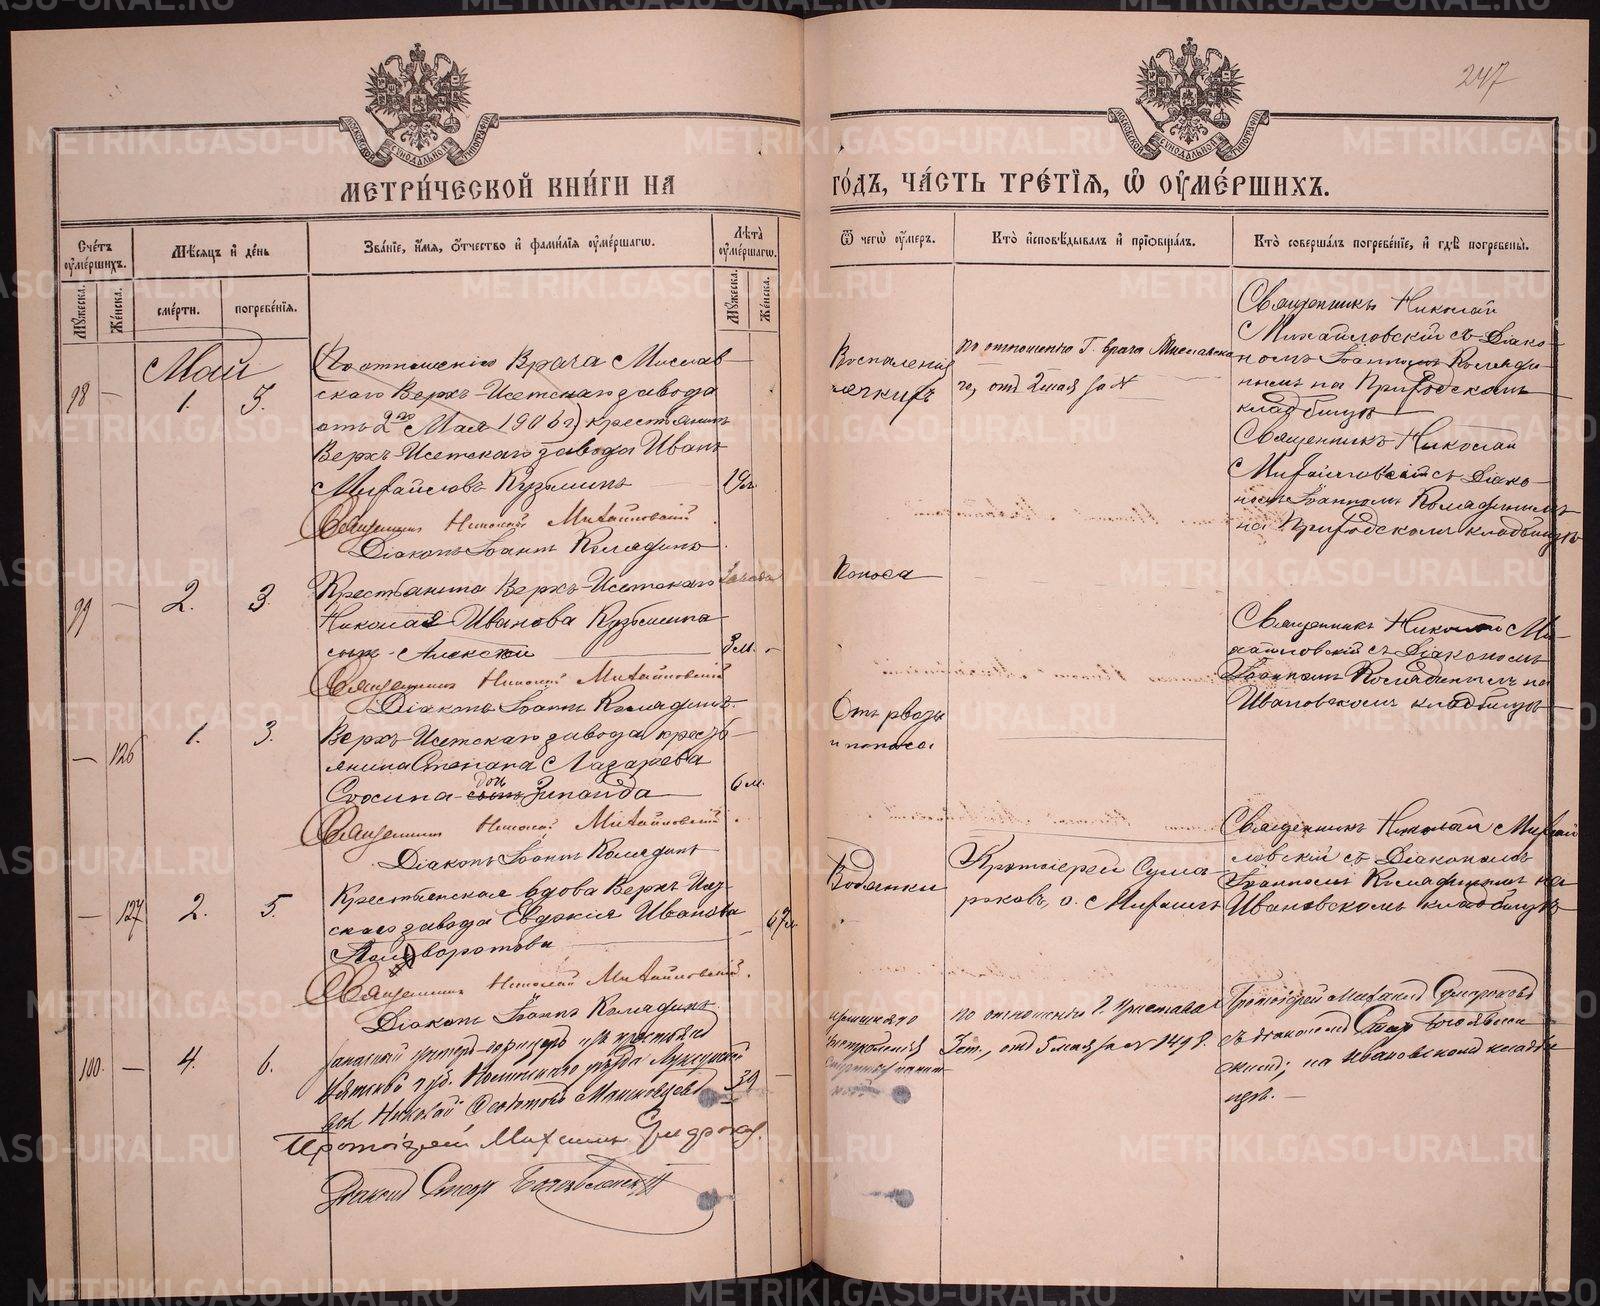 247
МОСКОВСКОЙ СУНОДАЛЬНОЙ ТИПОГРАФІИ
МОСКОВСКОЙ СУНОДАЛЬНОЙ ТИПОГРАФІИ
МЕТРИ́ЧЕСКОЙ КНИ́ГИ НА
ГО́ДЪ, ЧА́СТЬ ТРЕ́ТЇѦ, Ѡ҆ ОУ҆МЕ́РШИХЪ.
Сче́тъ оу҆ме́ршихъ.
Мꙋ́жеска.
Же́нска.
Мѣ́сѧцъ и҆ де́нь
сме́рти.
погребе́нїѧ.
Зва́нїе, и҆́мѧ, ѻ҆́тчество и҆ фами́лїѧ оу҆ме́ршагѡ.
Лѣ́та оу҆ме́ршагѡ.
Мꙋ́жеска.
Же́нска.
Ѿ чегѡ̀ оу҆́меръ.
Кто̀ и҆сповѣ́дывалъ и҆ прїѡбща́лъ.
Кто̀ соверша́лъ погребе́нїе, и҆ гдѣ̀ погребены̀.
Май
98 — 1. 3.
(По отношенію Врача Миславскаго Верхъ-Исетскаго завода
отъ 2го Мая 1906 г) крестьянинъ
Верхъ-Исетскаго завода Иванъ
Михайловъ Кузьминъ 19 л.
Священникъ Николай Михайловскій
Діаконъ Іоаннъ Колядинъ
Воспаленія
легкихъ
по отношенію Г. врача Миславска-
го, отъ 2 мая за №
Священникъ Николай
Михайловскій съ Діако-
номъ Іоанномъ Коляди-
нымъ на Приходскомъ
кладбищѣ
99 — 2. 3.
Крестьянина Верхъ-Исетскаго завода
Николая Иванова Кузьмина
сынъ Алексѣй 3 м.
Священникъ Николай Михайловскій
Діаконъ Іоаннъ Колядинъ.
Поноса
Священникъ Николай
Михайловскій съ Діако-
номъ Іоанномъ Колядинымъ
на Приходскомъ кладбищѣ
— 126 1. 3.
Верхъ-Исетскаго завода кресть-
янина Степана Лазарева
дочь
сынъ Зинаида 6 м.
Священникъ Николай Михайловскій
Діаконъ Іоаннъ Колядинъ
Отъ рвоты
и поноса
Священникъ Николай Ми-
хайловскій съ Діакономъ
Іоанномъ Колядинымъ на
Ивановскомъ кладбищѣ
— 127 2. 5.
Крестьянская вдова Верхъ-Исет-
скаго завода Евдокія Иванова
67 л.
Священникъ Николай Михайловскій.
Діаконъ Іоаннъ Колядинъ
Водянки
Протоіерей
о. Михаилъ
Священникъ Николай Михай-
ловскій съ Діакономъ
Іоанномъ Колядинымъ на
Ивановскомъ кладбищѣ
100. — 4. 6.
Запасный унтеръ-офицеръ изъ крестьянъ
Вятской губ. уѣзда
вол. Николай 39 —
Протоіерей Михаилъ
Діаконъ
по отношенію г. Пристава
отъ 5 мая за № 1498.
Протоіерей Михаилъ
съ діакономъ
на Ивановскомъ кладби-
щѣ. —
METRIKI.GASO-URAL.RU